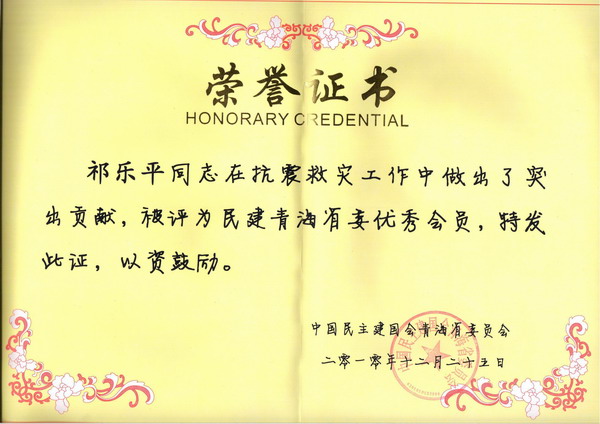 荣誉证书
HONORARY CREDENTIAL
祁乐平同志在抗震救灾工作中做出了突
出贡献，被评为民建青海省委优秀会员，特发
此证，以资鼓励。
中国民主建国会青海省委员会
二零一零年十二月二十五日